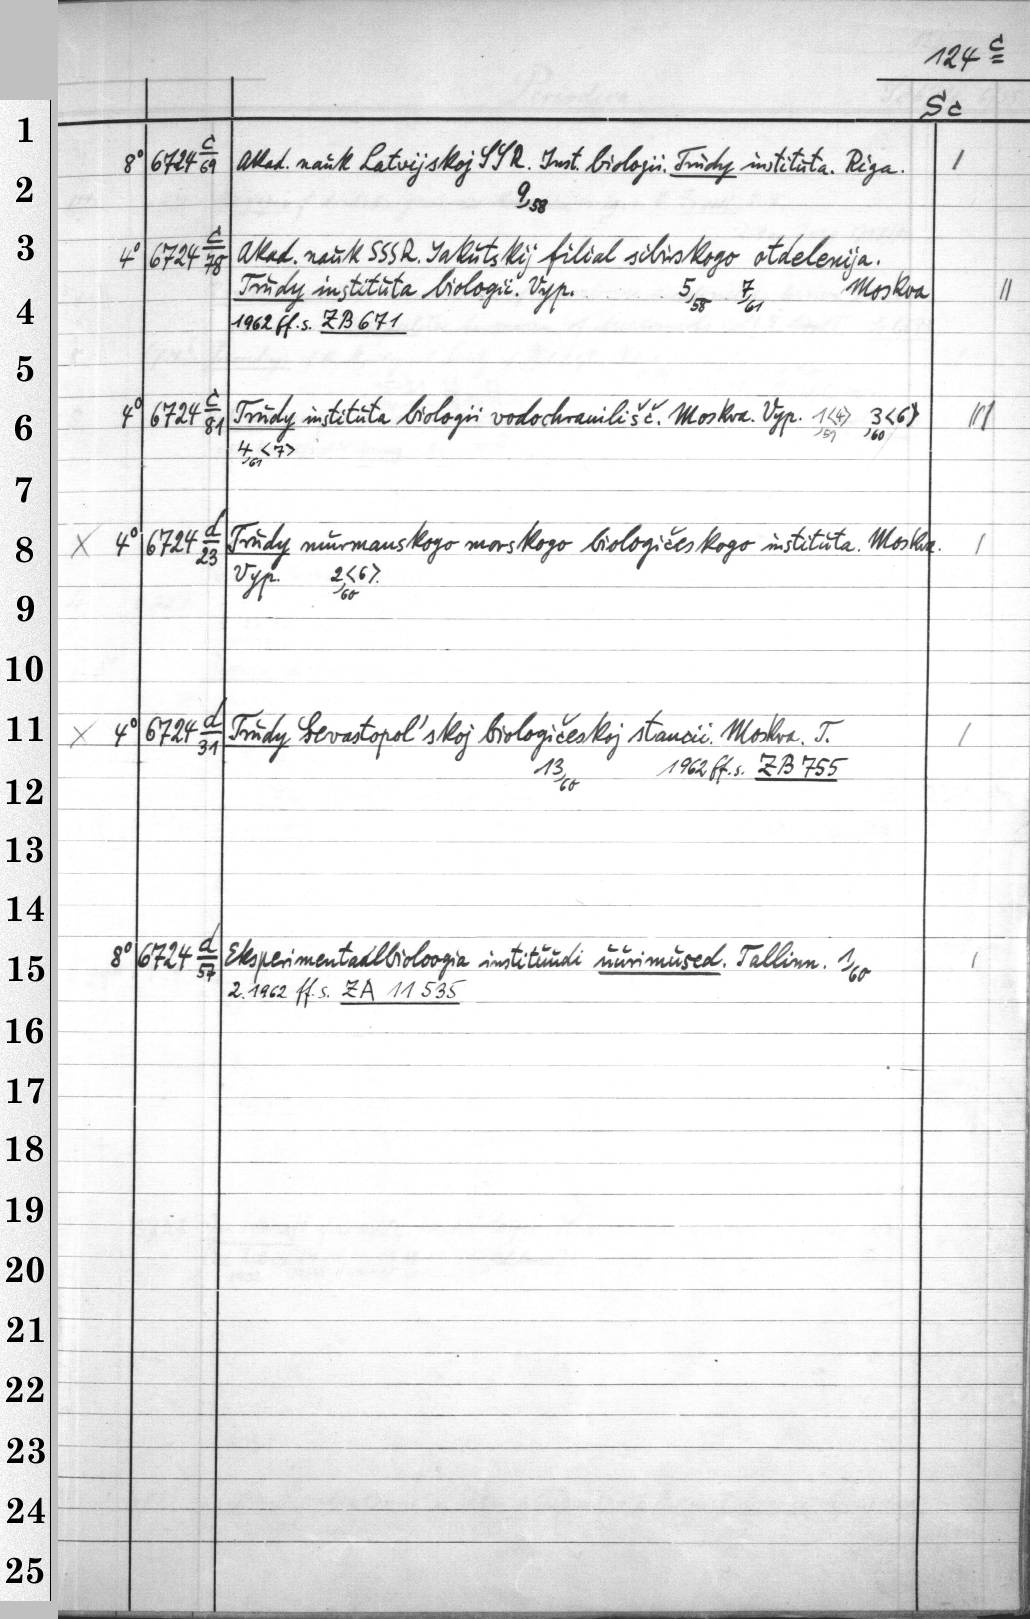 124 c
Sc
1
8° 6724 c/69 Akad. nauk Latvijskoj SSR. Inst. biologii. Trudy instituta. Riga. I
2
9,58
3
4° 6724 c/78 Akad. nauk SSSR. Jakutskij filial sibirskogo otdelenija.
Trudy instituta biologii. Vyp. 5,58 7,61 Moskva II
4
1962 ff. s. ZB 671
5
6
4° 6724 c/81 Trudy instituta biologii vodochranilišč. Moskva. Vyp. 1<4>,59 3<6>,60 III
4,61<7>
7
8
X 4° 6724 d/23 Trudy murmanskogo morskogo biologičeskogo instituta. Moskva. I
Vyp. 2<6>,60
9
10
11
X 4° 6724 d/31 Trudy Sevastopol'skoj biologičeskoj stancii. Moskva. T. I
13,60 1962 ff. s. ZB 755
12
13
14
15
8° 6724 d/57 Eksperimentaalbioloogia instituudi uurimused. Tallinn. 1,60 I
2.1962 ff. s. ZA 11 535
16
17
18
19
20
21
22
23
24
25